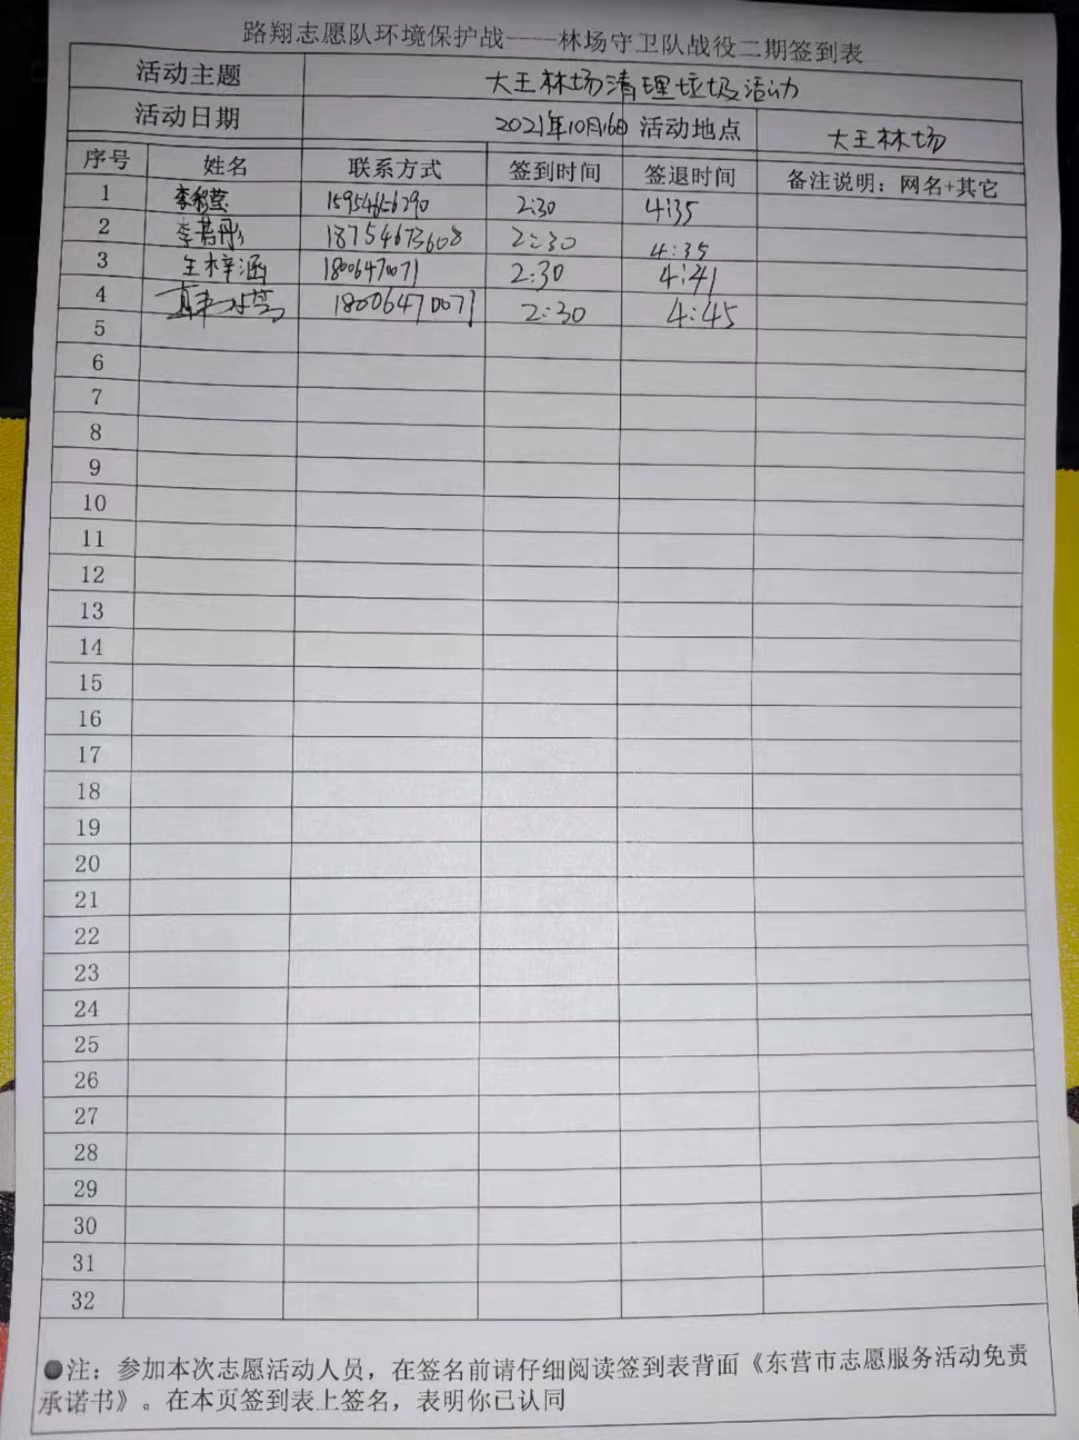 路翔志愿队环境保护战——林场守卫队战役二期签到表
活动主题 大王林场清理垃圾活动
活动日期 2021年10月16日 活动地点 大王林场
序号 姓名 联系方式 签到时间 签退时间 备注说明：网名+其它
1 李 15954656290 2:30 4:35
2 李若彤 18754673608 2:30 4:35
3 王梓涵 18006470071 2:30 4:41
4 18006470071 2:30 4:45
5
6
7
8
9
10
11
12
13
14
15
16
17
18
19
20
21
22
23
24
25
26
27
28
29
30
31
32
●注：参加本次志愿活动人员，在签名前请仔细阅读签到表背面《东营市志愿服务活动免责
承诺书》。在本页签到表上签名，表明你已认同